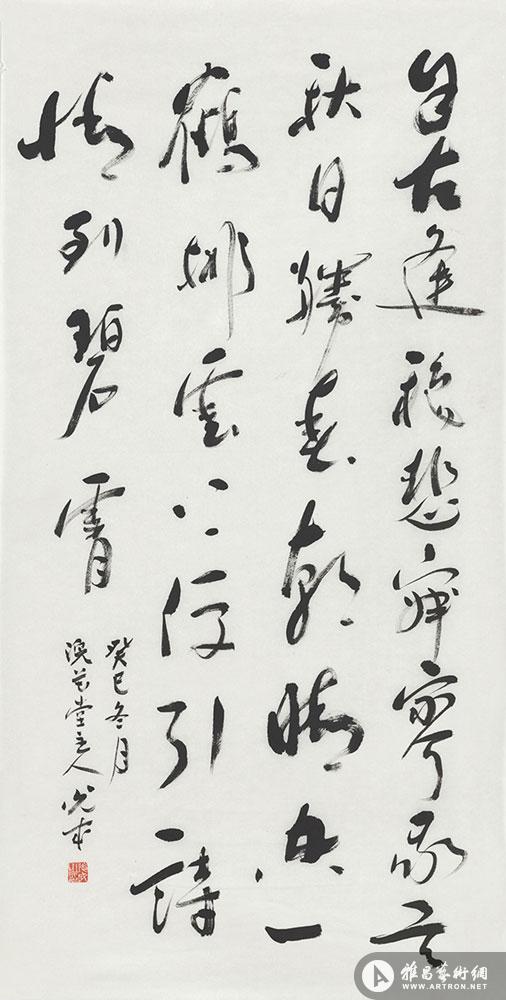 自古逢秋悲寂寥我言
秋日勝春朝晴空一
鶴排雲上便引詩
情到碧霄
癸巳冬月
堂主人
雅昌藝術網
WWW.ARTRON.NET